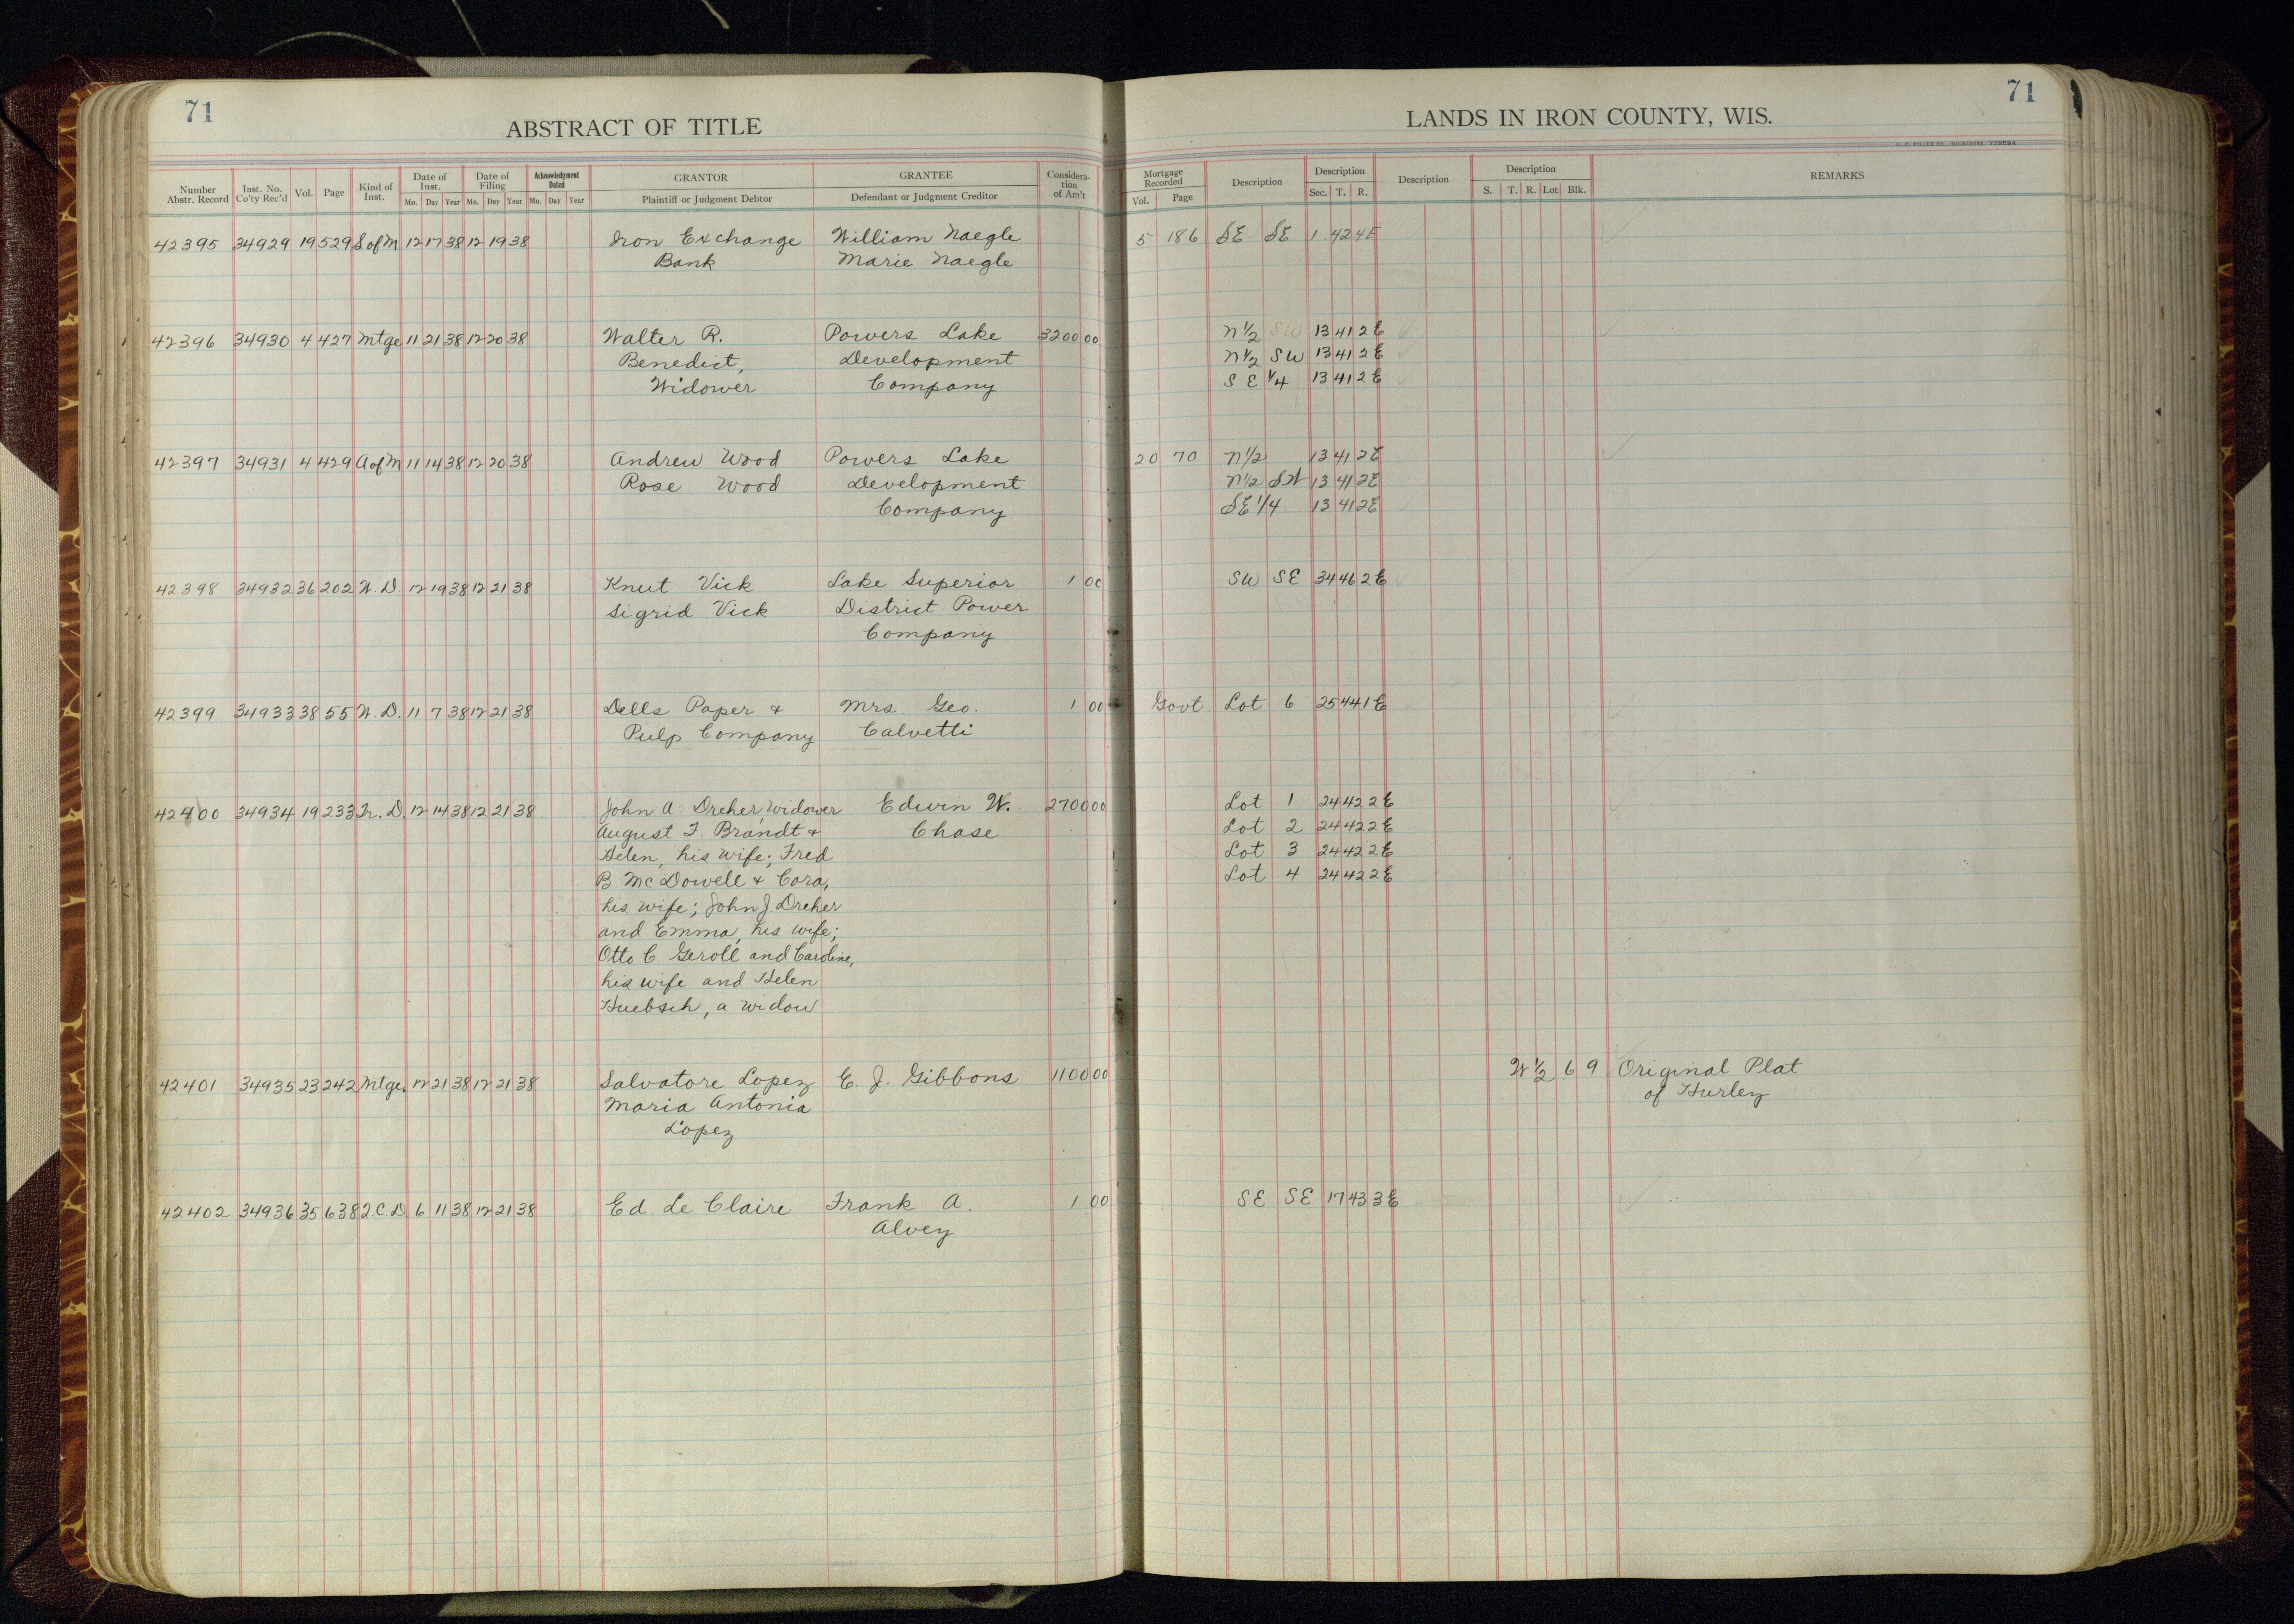 71
ABSTRACT OF TITLE
Number Abstr. Record Inst. No. Co'ty Rec'd Vol. Page Kind of Inst. Date of Inst. Mo. Day Year Date of Filing Mo. Day Year Acknowledgment Dated Mo. Day Year GRANTOR Plaintiff or Judgment Debtor GRANTEE Defendant or Judgment Creditor Considera-tion of Am't
42395 34929 19 529 S of M 12 17 38 12 19 38 Iron Exchange William Naegle
Bank Marie Naegle
42396 34930 4 427 Mtge 11 21 38 12 20 38 Walter R. Powers Lake 3200 00
Benedict, Development
Widower Company
42397 34931 4 429 A of M 11 14 38 12 20 38 Andrew Wood Powers Lake
Rose Wood Development
Company
42398 34932 36 202 W. D. 12 19 38 12 21 38 Knut Vick Lake Superior 1 00
Sigrid Vick District Power
Company
42399 34933 38 55 W. D. 11 7 38 12 21 38 Dells Paper & Mrs. Geo. 1 00
Pulp Company Calvetti
42400 34934 19 233 Tr. D. 12 14 38 12 21 38 John A. Dreher, widower Edwin W. 2700 00
August F. Brandt & Chase
Helen, his wife; Fred
B. McDowell & Cora,
his wife; John J. Dreher
and Emma, his wife;
Otto C. Geroll and Caroline,
his wife and Helen
Huebsch, a widow
42401 34935 23 242 Mtge. 12 21 38 12 21 38 Salvatore Lopez E. J. Gibbons 1100 00
Maria Antonia
Lopez
42402 34936 35 638 Q.C.D. 6 11 38 12 21 38 Ed. Le Claire Frank A. 1 00
Alvey
71
LANDS IN IRON COUNTY, WIS.
H. C. MILLER CO., MILWAUKEE Y28594
Mortgage Recorded Vol. Page Description Description Sec. T. R. Description Description S. T. R. Lot Blk. REMARKS
5 186 SE SE 1 42 4E
N 1/2 SW 13 41 2E
N 1/2 SW 13 41 2E
S E 1/4 13 41 2E
20 70 N 1/2 13 41 2E
N 1/2 SW 13 41 2E
SE 1/4 13 41 2E
SW SE 34 46 2E
Govt. Lot 6 25 44 1E
Lot 1 24 42 2E
Lot 2 24 42 2E
Lot 3 24 42 2E
Lot 4 24 42 2E
W 1/2 6 9 Original Plat
of Hurley
SE SE 17 43 3E